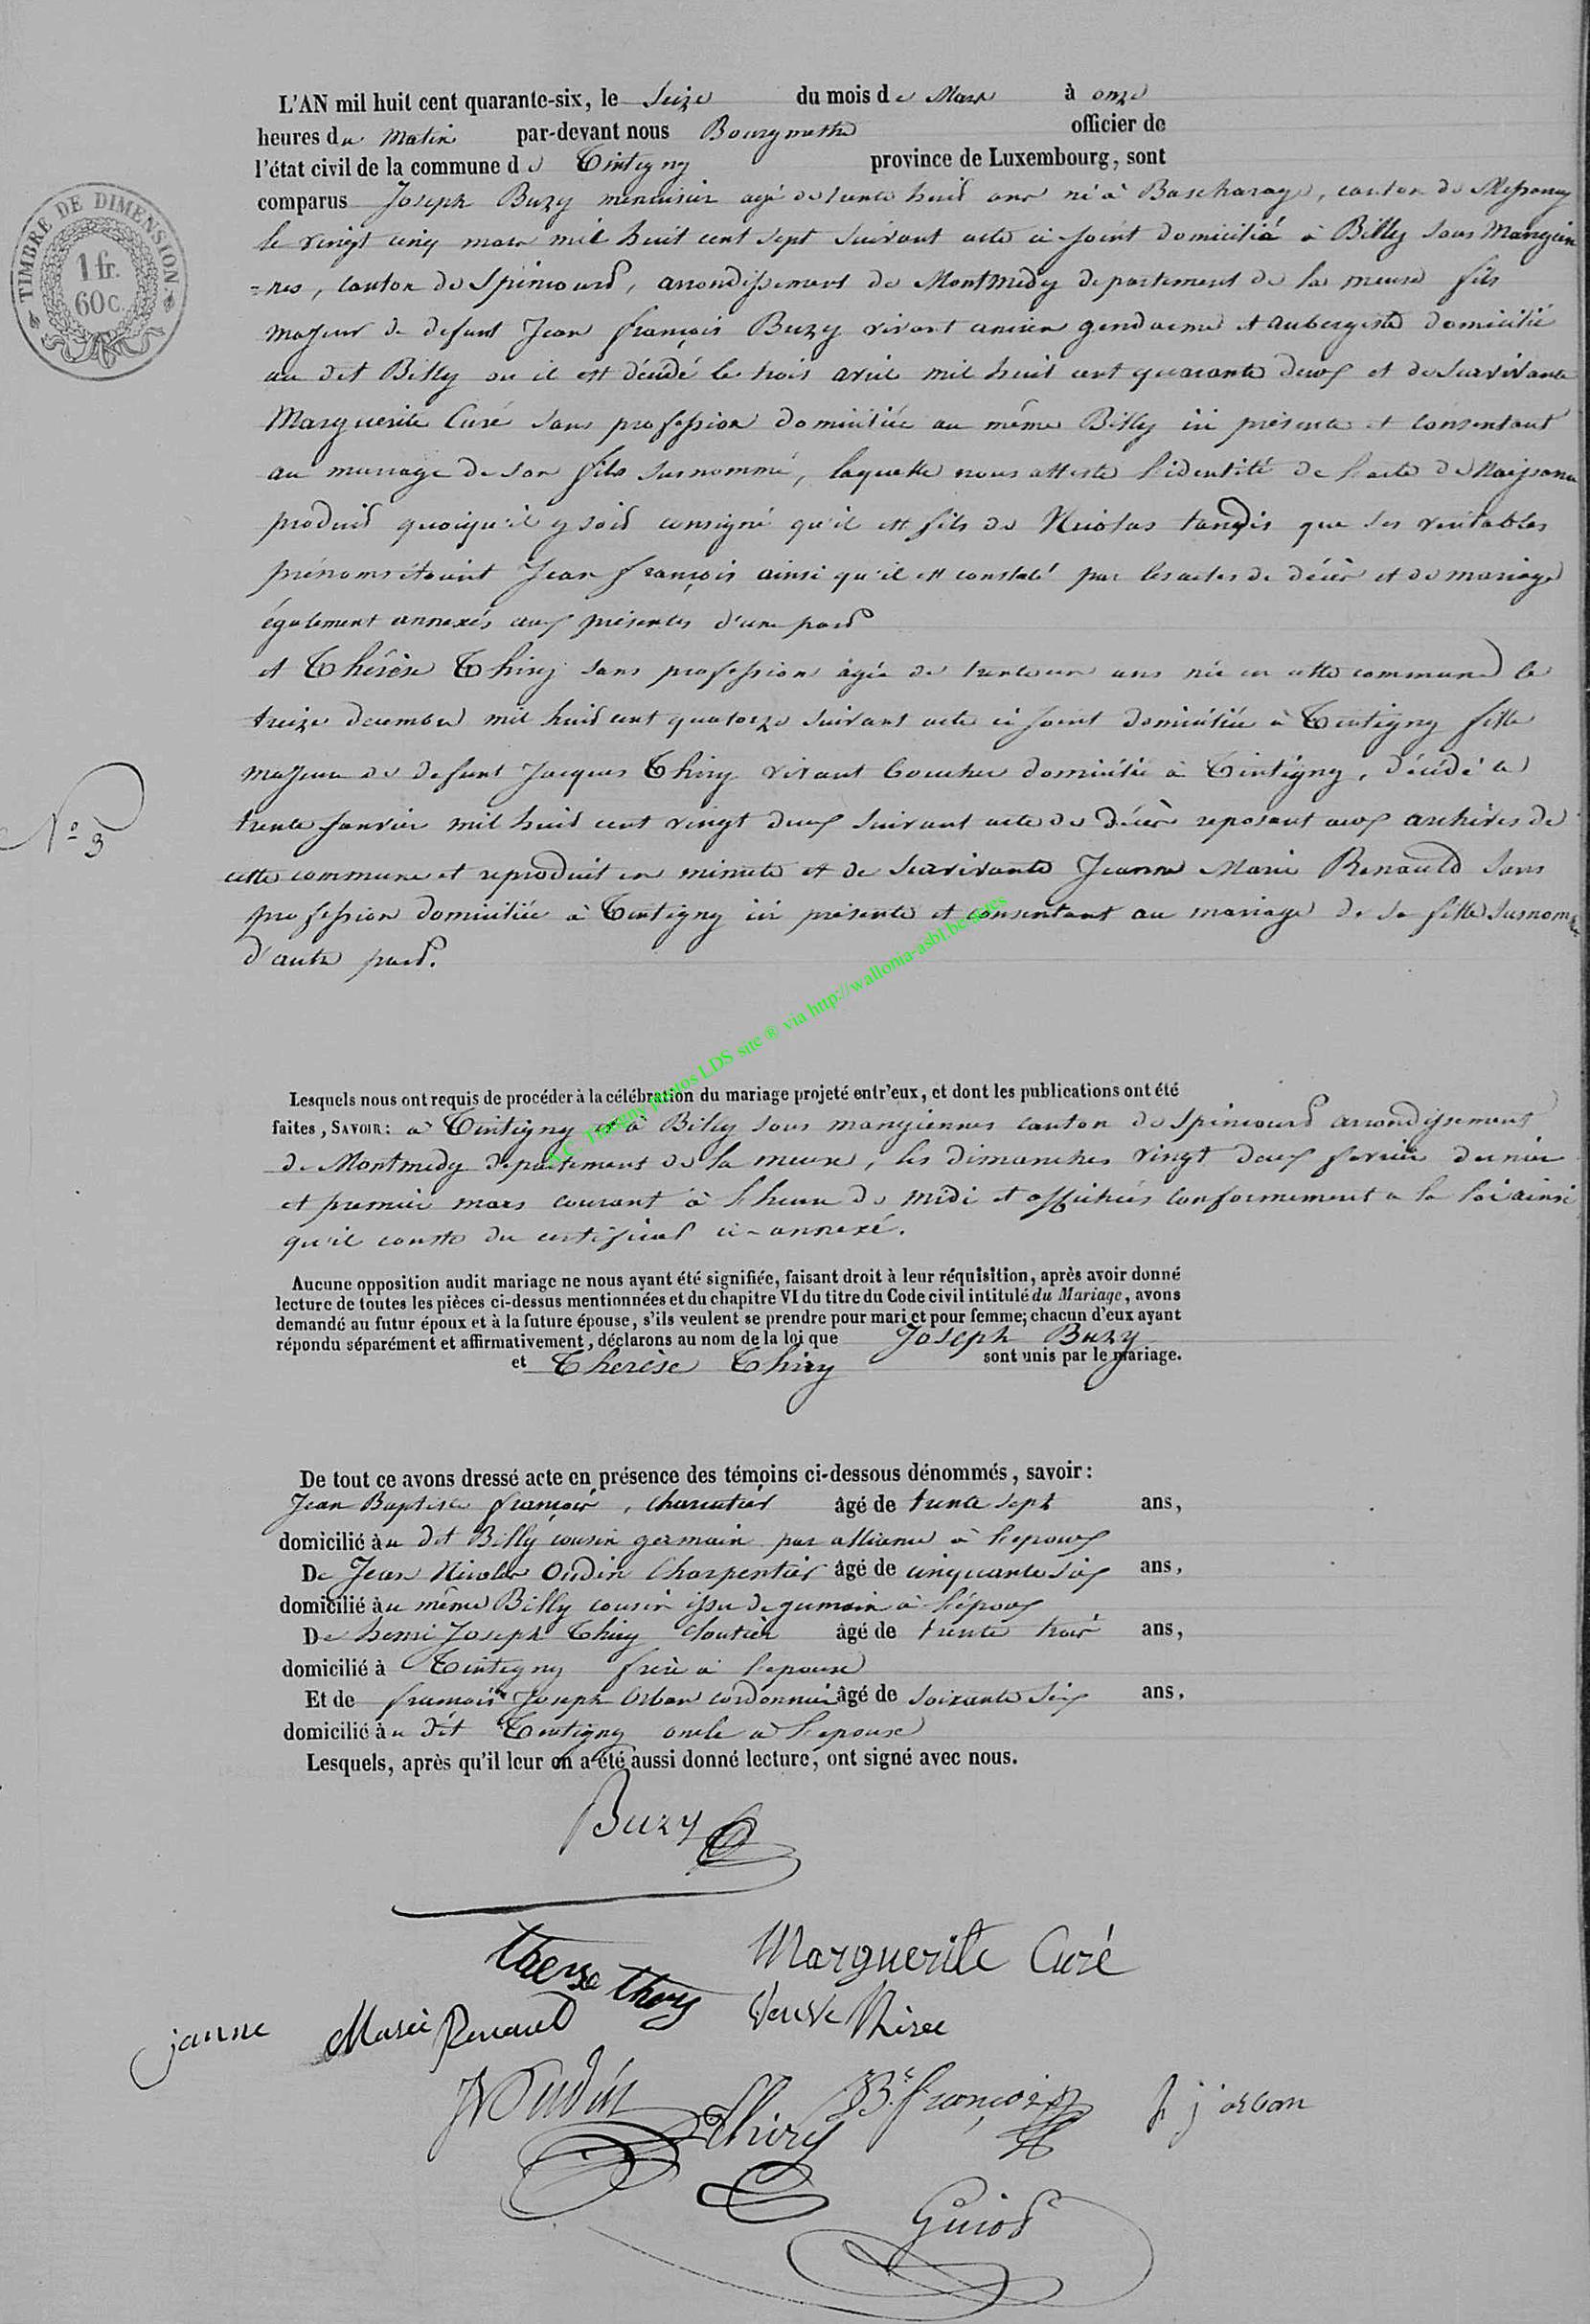 L'AN mil huit cent quarante-six, le Seize du mois de Mars à onze
heures du Matin par-devant nous Bourgmestre officier de
l'état civil de la commune de Tintigny province de Luxembourg, sont
comparus Joseph Buzy menuisier agé de trente huit ans né à Bascharage, canton de Messancy
le vingt cinq mars mil huit cent sept suivant acte ci joint domicilié à Billy sous Mangien
=nes, canton de Spincourt, arrondissement de Montmedy departement de la meuse fils
majeur de defunt Jean françois Buzy vivant ancien gendarme et aubergiste domicilié
au dit Billy ou il est décédé le trois avril mil huit cent quarante deux et de survivante
Marguerite Curé sans profession domiciliée au même Billy ici présente et consentant
au mariage de son fils susnommé, laquelle nous atteste l'identité de l'acte de Naissance
produit quoiqu'il y soit consigné qu'il est fils de Nicolas tandis que ses veritables
prénoms étaient Jean françois ainsi qu'il est constaté par les actes de décès et de mariage
également annexés aux présentes d'une part
et Thérèse Thiry sans profession âgée de trente un ans née en cette commune le
treize decembre mil huit cent quatorze suivant acte ci joint domiciliée à Tintigny fille
majeure de defunt Jacques Thiry vivant boucher domicilié à Tintigny, décédé le
trente Janvier mil huit cent vingt deux suivant acte de décès reposant aux archives de
cette commune et reproduit en minute et de survivante Jeanne Marie Renauld sans
profession domiciliée à Tintigny ici présente et consentant au mariage de sa fille susnommée
d'autre part.
TIMBRE DE DIMENSION.
1 fr.
60 c.
No 3
Lesquels nous ont requis de procéder à la célébration du mariage projeté entr'eux, et dont les publications ont été
faites, SAVOIR: à Tintigny et à Billy sous mangiennes canton de Spincourt arrondissement
de Montmedy departement de la meuse, les dimanches vingt deux fevrier dernier
et premier mars courant à l'heure de midi et affichées conformement a la loi ainsi
qu'il conste du certificat ci-annexé.
Aucune opposition audit mariage ne nous ayant été signifiée, faisant droit à leur réquisition, après avoir donné
lecture de toutes les pièces ci-dessus mentionnées et du chapitre VI du titre du Code civil intitulé du Mariage, avons
demandé au futur époux et à la future épouse, s'ils veulent se prendre pour mari et pour femme; chacun d'eux ayant
répondu séparément et affirmativement, déclarons au nom de la loi que Joseph Buzy
et Therèse Thiry sont unis par le mariage.
De tout ce avons dressé acte en présence des témoins ci-dessous dénommés, savoir:
Jean Baptiste françois, charcutier âgé de trente sept ans,
domicilié au dit Billy cousin germain par alliance à l'epoux
De Jean Nicolas Oudin Charpentier âgé de cinquante six ans,
domicilié au même Billy cousin issu de germain à l'époux
De henri Joseph Thiry cloutier âgé de trente trois ans,
domicilié à Tintigny frère à l'epouse
Et de francois Joseph Orban cordonnier âgé de soixante six ans,
domicilié au dit Tintigny oncle à l'epouse
Lesquels, après qu'il leur en a été aussi donné lecture, ont signé avec nous.
Buzy
Marguerite Curé
Therese Thiry
Veuve
janne Marie Renauld
JN Oudin
Thiry
JBte françois
f j orban
Guiot
A.C. Tintigny photos LDS site ® via http://wallonia-asbl.be/actes